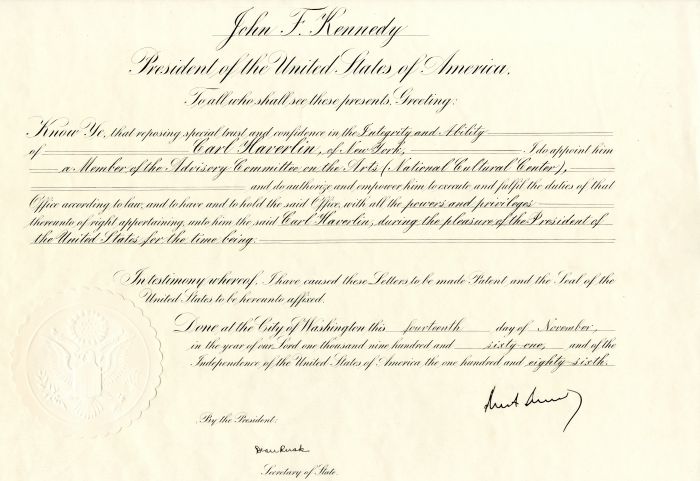 John F. Kennedy
President of the United States of America.
To all who shall see these presents, Greeting:
Know Ye, that reposing special trust and confidence in the Integrity and Ability
of Carl Haverlin, of New York, I do appoint him
a Member of the Advisory Committee on the Arts (National Cultural Center),
and do authorize and empower him to execute and fulfil the duties of that
Office according to law, and to have and to hold the said Office, with all the powers and privileges
thereunto of right appertaining, unto him the said Carl Haverlin, during the pleasure of the President of
the United States for the time being.
In testimony whereof, I have caused these Letters to be made Patent and the Seal of the
United States to be hereunto affixed.
Done at the City of Washington this fourteenth day of November,
in the year of our Lord one thousand nine hundred and sixty-one, and of the
Independence of the United States of America the one hundred and eighty-sixth.
By the President:
Dean Rusk
Secretary of State.